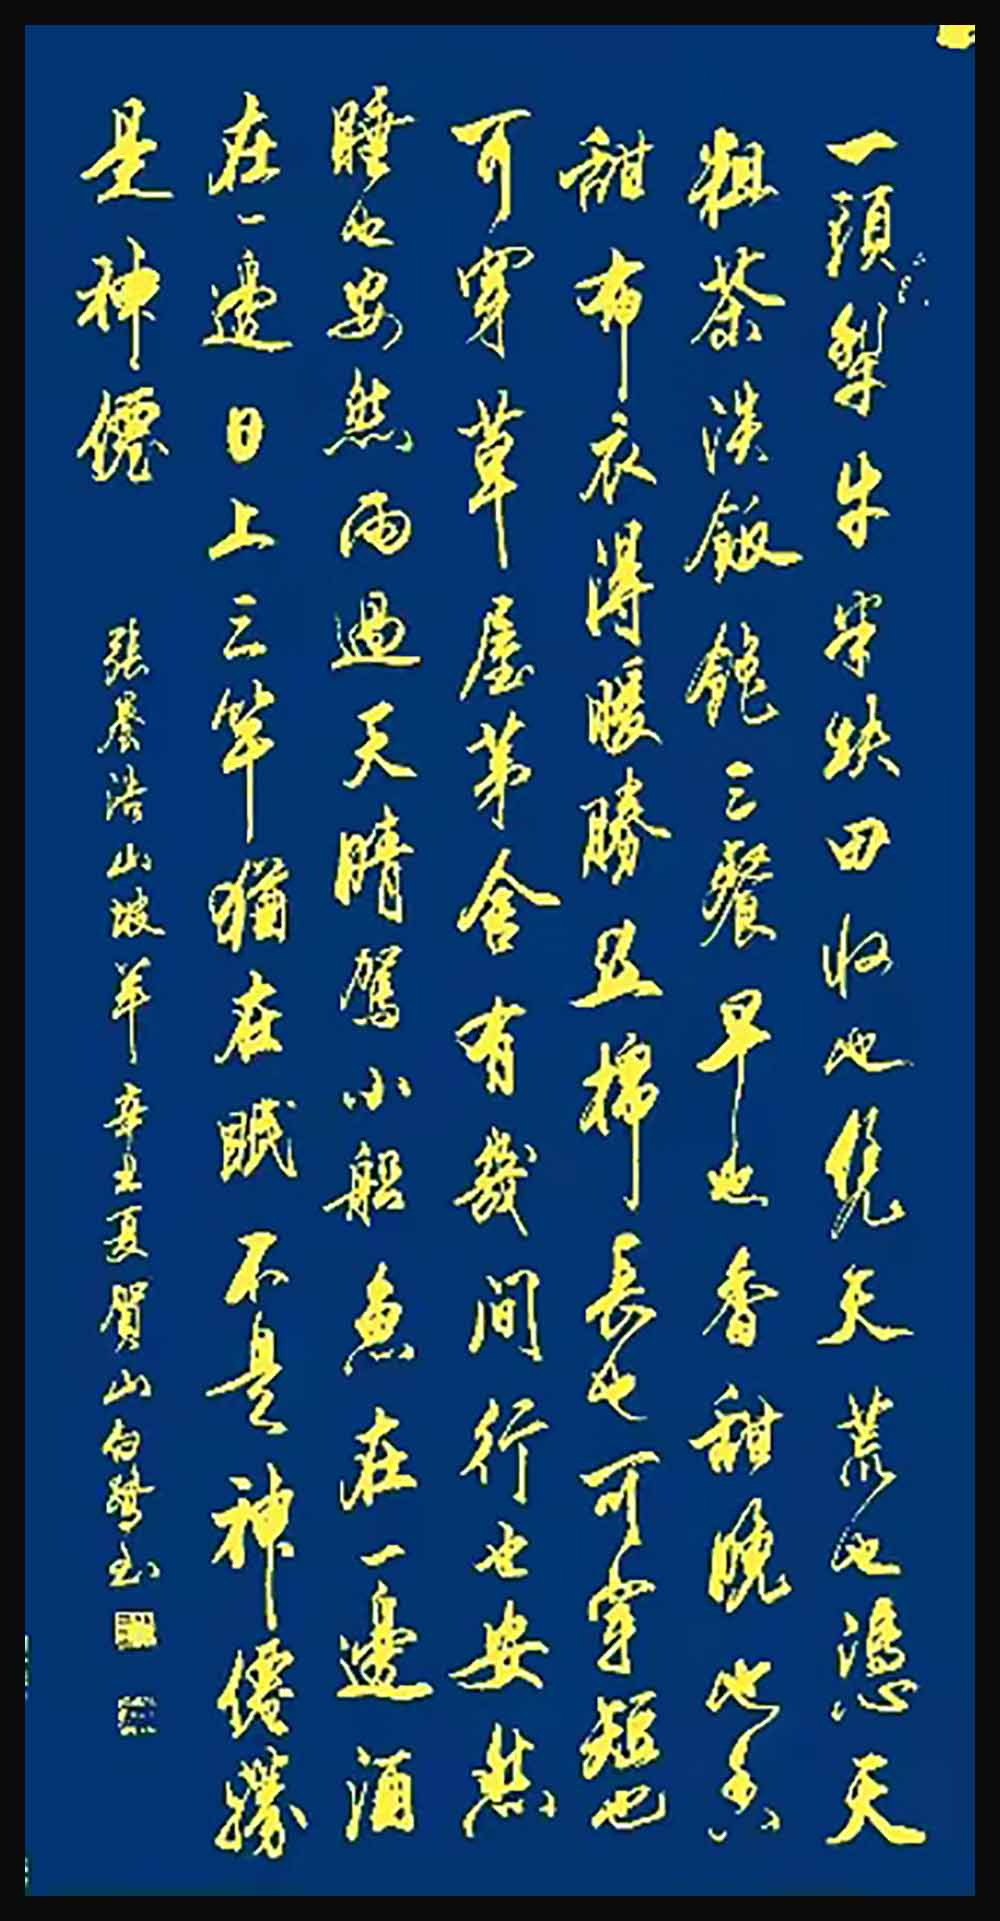 一頭犁牛半块田收也凭天荒也憑天
粗茶淡飯飽三餐早也香甜晚也香
甜布衣得暖勝丝棉長也可穿短也
可穿草屋茅舍有幾间行也安然
睡也安然雨過天晴駕小船魚在一邊酒
在一邊日上三竿猶在眠不是神僊勝
是神僊
張養浩山坡羊辛丑夏賀山白鷺书